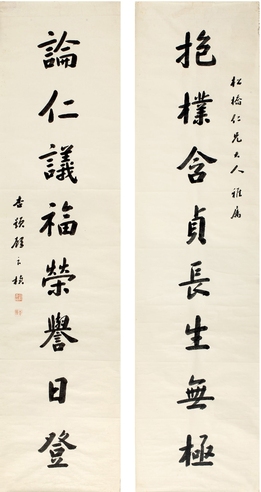 松橋仁兄大人雅屬
抱樸含貞長生無極
論仁議福榮譽日登